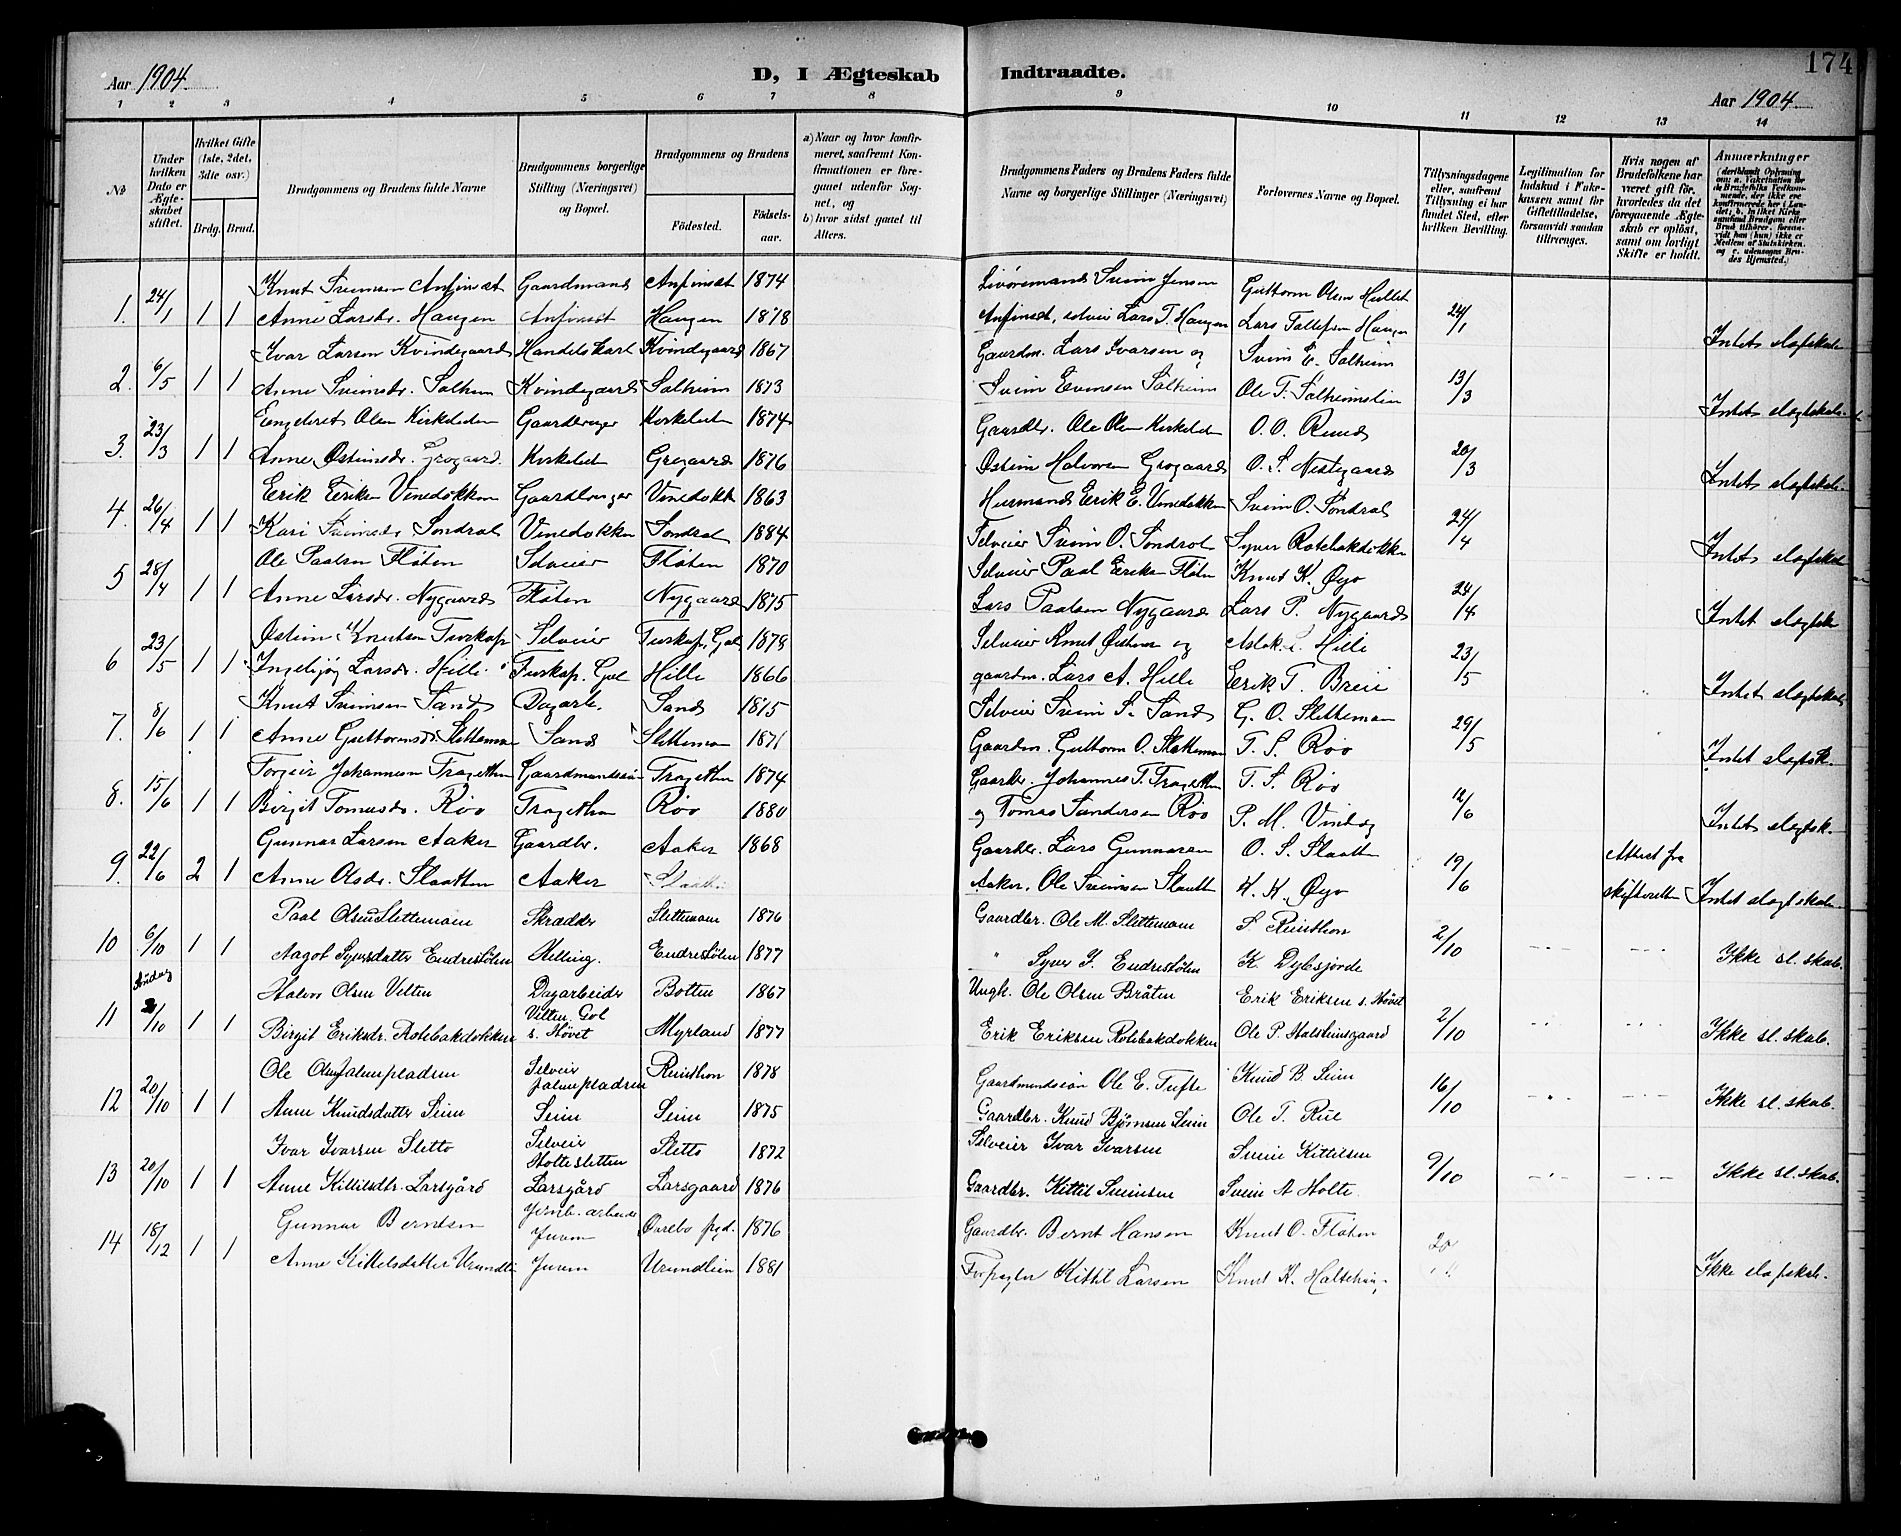 174
Aar 1904. D, I Ægteskab Indtraadte. Aar 1904.
1 2 3 4 5 6 7 8 9 10 11 12 13 14
No
Under hvilken Dato er Ægteskabet stiftet.
Hvilket Gifte (1ste, 2det, 3die osv.)
Brdg. Brud.
Brudgommens og Brudens fulde Navne
Brudgommens borgerlige Stilling (Næringsvei) og Bopæl.
Brudgommens og Brudens
Fødested. Fødselsaar.
a) Naar og hvor konfirmeret, saafremt Konfirmationen er foregaaet udenfor Sognet, og
b) hvor sidst gaaet til Alters.
Brudgommens Faders og Brudens Faders fulde Navne og borgerlige Stillinger (Næringsvei)
Forlovernes Navne og Bopæl.
Tillysningsdagene eller, saafremt Tillysning ei har fundet Sted, efter hvilken Bevilling.
Legitimation for Indskud i Enkekassen samt for Giftetilladelse, forsaavidt saadan tiltrænges.
Hvis nogen af Brudefolkene har været gift før, hvorledes da det foregaaende Ægteskab er opløst, samt om lovligt Skifte er holdt.
Anmærkninger
Knut Sveinsen Anfinset Gaardmand Anfinset 1874 Svein Jensen Guttorm Olsen Hullet
1. 24/1 1 1 Anne Larsdr. Haugen Anfinset Haugen 1878 Anfinset, Lars T. Haugen Lars Tollefsen Haugen 24/1 Intet slegtskab
Ivar Larsen Kvindegaard Handelskarl Kvindegaard 1867 Gaardm. Lars Ivarsen og Svein E. Solheim
2. 6/5 1 1 Anne Sveinsdr. Solheim Kvindegaard Solheim 1873 Svein Evensen Solheim Ole T. Solheimslien 13/3 Intet slegtskab.
Engebret Olsen Kirkeleden Gaardbruger Kirkeleden 1874 Gaardbr. Ole Olsen Kirkeleden O. O. Rund
3. 23/3 1 1 Anne Østensdr. Grogaard. Kirkeled Grogaard 1876 Østein Halvorsen Grogaard O. S. Nestegaard 20/3 Intet slegtskab.
Eerik Eeriksen Vinedokken Gaardbruger Vinedokk 1863 Husmand Eerik E. Vinedokken Svein O. Sondrol
4. 26/4 1 1 Kari Sveinsdr. Sondral Vinedokken Sondral 1884 Selveier Svein O. Sondrol Syver Rotebakdokken 24/4 Intet slegtskab
Ole Paalsen Fløten Selveier Fløten 1870 Selveier Paal Eeriksen Fløten Knut K. Øyo
5 28/4 1 1 Anne Larsdr. Nygaard Fløten Nygaard 1875 Lars Paalsen Nygaard Lars P. Nygaard 24/4 Intet slegtsk
Østein Knutsen Turkop Selveier Turkop, Gol 1879 Selveier Knut Østensen og Aslak L. Hille
6 23/5 1 1 Ingebjøg Larsdr. Hille. Turkop. Gol Hille 1866 gaardm. Lars A. Hille Eerik T. Breie 23/5 Intet slegtskab
Knut Sveinsen Sand Dagarb. Sand 1875 Selveier Svein S. Sand G. O. Slettemon
7. 8/6 1 1 Anne Guttormsdr. Slettemon Sand Slettemon 1871 Gaardm. Guttorm O. Slettemon T. S. Roo 29/5 Intet slegtsk.
Torgeir Johannesen Tragethon Gaardmandssøn Tragethon 1874 Gaardbr. Johannes T. Tragethon T. S. Roo
8. 15/6 1 1 Birgit Tomasdr. Roo Tragethon Roo 1880 og Tomas Sandersen Roo P. M. Vinteg 12/6 Intet slegtsk.
Gunnar Larsen Aaker Gaardbr. Aaker 1868 Gaardbr. Lars Gunnarsen O. S. Slaatten Attest fra
9. 22/6 2 1 Anne Olsdr. Slaatten Aaker Slaatten Aaker. Ole Sveinsen Slaatten K. K. Øyo 19/6 Skifteretten Intet slegtskab.
Paal Olsen Slettemoen Skrædder Slettemoen 1876 Gaardbr. Ole M. Slettemoen S. Ruisthon
10 6/10 1 1 Aagot Syversdatter Endrestølen Helling. Endrestølen 1877 " Syver J. Endrestølen K. Dybsjorde 2/10 Ikke sl. skab.
Halvor Olsen Velten Dagarbeider Botten 1867 Ungk. Ole Olsen Bråten Erik Eriksen s. Høvet
Velten Gol
11 /10 1 1 Birgit Eriksdr. Rotebakdokken s. Høvet Myrland 1877 Erik Eriksen Rotebakdokken Ole P. Halsteinsgaard 2/10 Ikke sl. skab.
Ole Olsen Jalmpladsen Selveier Ruisthon 1878 Gaardmandssøn Ole E. Tufte Knud B. Seim
Jalmpladsen
12 20/10 1 1 Anne Knudsdatter Seim Seim Seim 1875 Gaardbr. Knud Bjørnsen Seim Ole T. Rue 16/10 Ikke sl. skab.
Ivar Ivarsen Sletto Selveier Sletto 1872 Selveier Ivar Ivarsen Svein Kittilsen
Holtesletten
13 20/10 1 1 Anne Kittilsdtr. Larsgård Larsgård Larsgaard 1876 Gaardbr. Kittil Sveinsen Svein A Holte. 9/10 Ikke sl. skab.
Gunnar Berntsen Jernb. arbeider Øvrebø pgd. 1876 Gaardbr. Bernt Hansen Knut O. Fløten
Juven
14 18/12 1 1 Anne Kittelsdatter Urundlien Juven Urundlien 1881 Forpagter Kittil Larsen Knut K. 20 Ikke slegtskab.